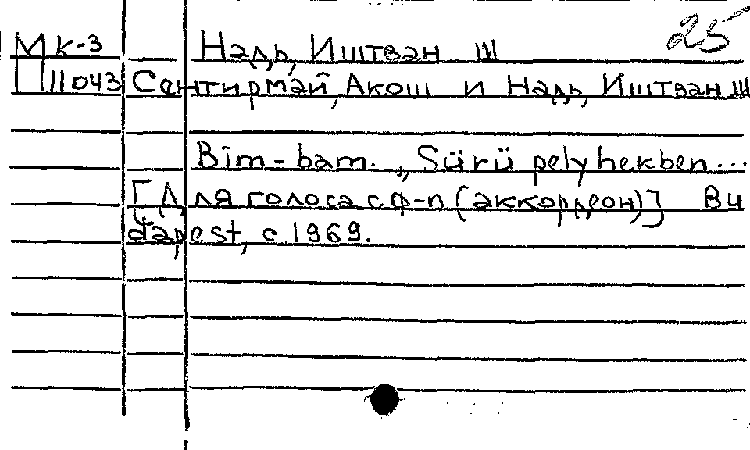 25
МК-3 Надь, Иштван III
П11043 Сентирмай, Акош и Надь, Иштван III
Bim-bam. „Sürü pelyhekben...
[Для голоса с ф-п (аккордеон)] Bu
dapest, c. 1969.